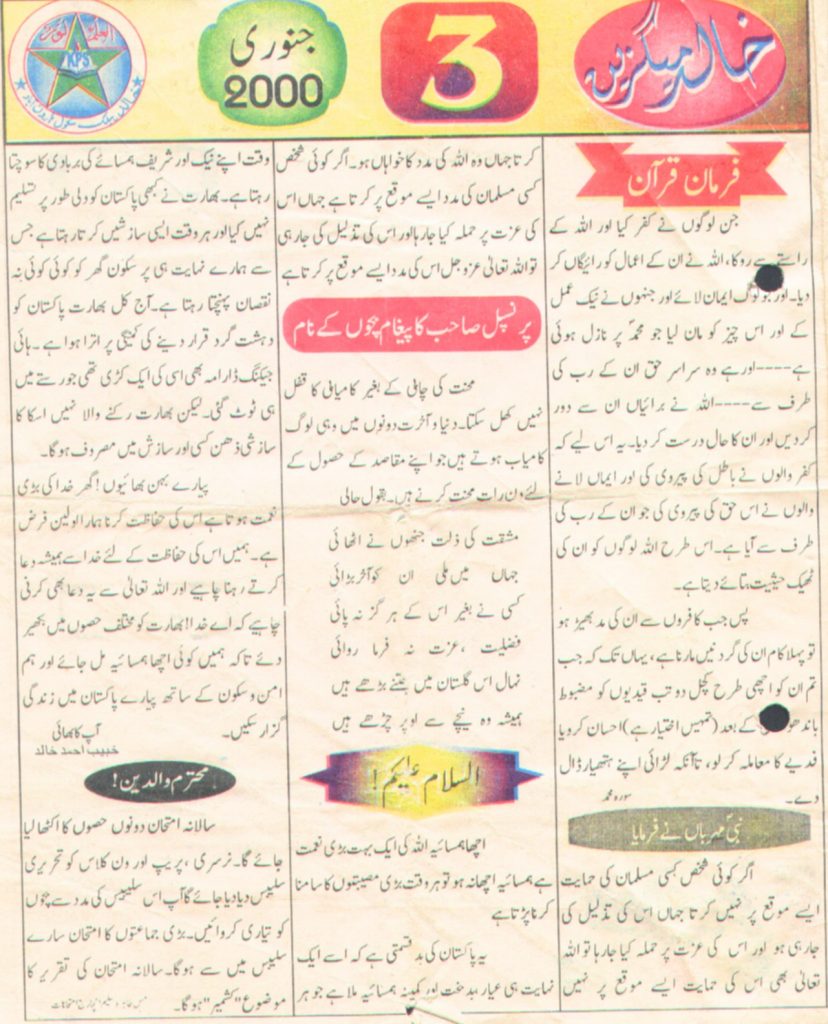 خالد میگزین
3
جنوری
2000
KPS
فرمان قرآن
جن لوگوں نے کفر کیا اور اللہ کے
راستے سے روکا، اللہ نے ان کے اعمال کو رائیگاں کر
دیا۔ اور جو لوگ ایمان لائے اور جنہوں نے نیک عمل
کے اور اس چیز کو مان لیا جو محمدؐ پر نازل ہوئی
ہے----اور ہے وہ سراسر حق ان کے رب کی
طرف سے----اللہ نے برائیاں ان سے دور
کر دیں اور ان کا حال درست کر دیا۔ یہ اس لیے کہ
کفر والوں نے باطل کی پیروی کی اور ایمان لانے
والوں نے اس حق کی پیروی کی جو ان کے رب کی
طرف سے آیا ہے۔ اس طرح اللہ لوگوں کو ان کی
ٹھیک حیثیت بتائے دیتا ہے۔
پس جب کافروں سے ان کی مدبھیڑ ہو
تو پہلا کام ان کی گردنیں مارنا ہے، یہاں تک کہ جب
تم ان کو اچھی طرح کچل دو تب قیدیوں کو مضبوط
باندھو کے بعد (تمہیں اختیار ہے) احسان کرو یا
فدیے کا معاملہ کر لو، تاآنکہ لڑائی اپنے ہتھیار ڈال
دے۔ سورہ محمد
نبیؐ مہرباں نے فرمایا
اگر کوئی شخص کسی مسلمان کی حمایت
ایسے موقع پر نہیں کرتا جہاں اس کی تذلیل کی
جا رہی ہو اور اس کی عزت پر حملہ کیا جا رہا تو اللہ
تعالیٰ بھی اس کی حمایت ایسے موقع پر نہیں
کرتا جہاں وہ اللہ کی مدد کا خواہاں ہو۔ اگر کوئی شخص
کسی مسلمان کی مدد ایسے موقع پر کرتا ہے جہاں اس
کی عزت پر حملہ کیا جا رہا اور اس کی تذلیل کی جا رہی
تو اللہ تعالیٰ عزوجل اس کی مدد ایسے موقع پر کرتا ہے
پرنسپل صاحب کا پیغام بچوں کے نام
محنت کی چابی کے بغیر کامیابی کا قفل
نہیں کھل سکتا۔ دنیا و آخرت دونوں میں وہی لوگ
کامیاب ہوتے ہیں جو اپنے مقاصد کے حصول کے
لئے دن رات محنت کرتے ہیں۔ بقول حالی
مشقت کی ذلت جنھوں نے اٹھائی
جہاں میں ملی ان کو آخر بڑائی
کسی نے بغیر اس کے ہرگز نہ پائی
فضیلت ، عزت نہ فرما روائی
نہال اس گلستان میں جتنے بڑھے ہیں
ہمیشہ وہ نیچے سے اوپر چڑھے ہیں
السلام علیکم!
اچھا ہمسائیہ اللہ کی ایک بہت بڑی نعمت
ہے ہمسائیہ اچھا نہ ہو تو ہر وقت بڑی مصیبتوں کا سامنا
کرنا پڑتا ہے
یہ پاکستان کی بدقسمتی ہے کہ اسے ایک
نہایت ہی عیار، بدبخت اور کمینہ ہمسائیہ ملا ہے جو ہر
وقت اپنے نیک اور شریف ہمسائے کی بربادی کا سوچتا
رہتا ہے۔ بھارت نے کبھی پاکستان کو دلی طور پر تسلیم
نہیں کیا اور ہر وقت ایسی سازشیں کرتا رہتا ہے جس
سے ہمارے نہایت ہی پر سکون گھر کو کوئی کوئی نہ
نقصان پہنچتا رہتا ہے۔ آج کل بھارت پاکستان کو
دہشت گرد قرار دینے کی کمینگی پر اترا ہوا ہے۔ ہائی
جیکنگ ڈرامہ بھی اسی کی ایک کڑی تھی جو رستے میں
ہی ٹوٹ گئی۔ لیکن بھارت رکنے والا نہیں اسکا کا
سازشی ذھن کسی اور سازش میں مصروف ہوگا۔
پیارے بہن بھائیوں! گھر خدا کی بڑی
نعمت ہوتا ہے اس کی حفاظت کرنا ہمارا اولین فرض
ہے۔ ہمیں اس کی حفاظت کے لئے خدا سے ہمیشہ دعا
کرتے رہنا چاہیے اور اللہ تعالیٰ سے یہ دعا بھی کرنی
چاہیے کہ اے خدا! بھارت کو مختلف حصوں میں بکھیر
دئے تاکہ ہمیں کوئی اچھا ہمسائیہ مل جائے اور ہم
امن و سکون کے ساتھ پیارے پاکستان میں زندگی
گزار سکیں۔ آپ کا بھائی
خبیب احمد خالد
محترم والدین!
سالانہ امتحان دونوں حصوں کا اکٹھا لیا
جائے گا۔ نرسری، پریپ اور ون کلاس کو تحریری
سلیبس دیا دیا جائے گا آپ اس سلیبیس کی مدد سے بچوں
کو تیاری کروائیں۔ بڑی جماعتوں کا امتحان سارے
سلیبس میں سے ہوگا۔ سالانہ امتحان کی تقریر کا
موضوع "کشمیر" ہوگا۔